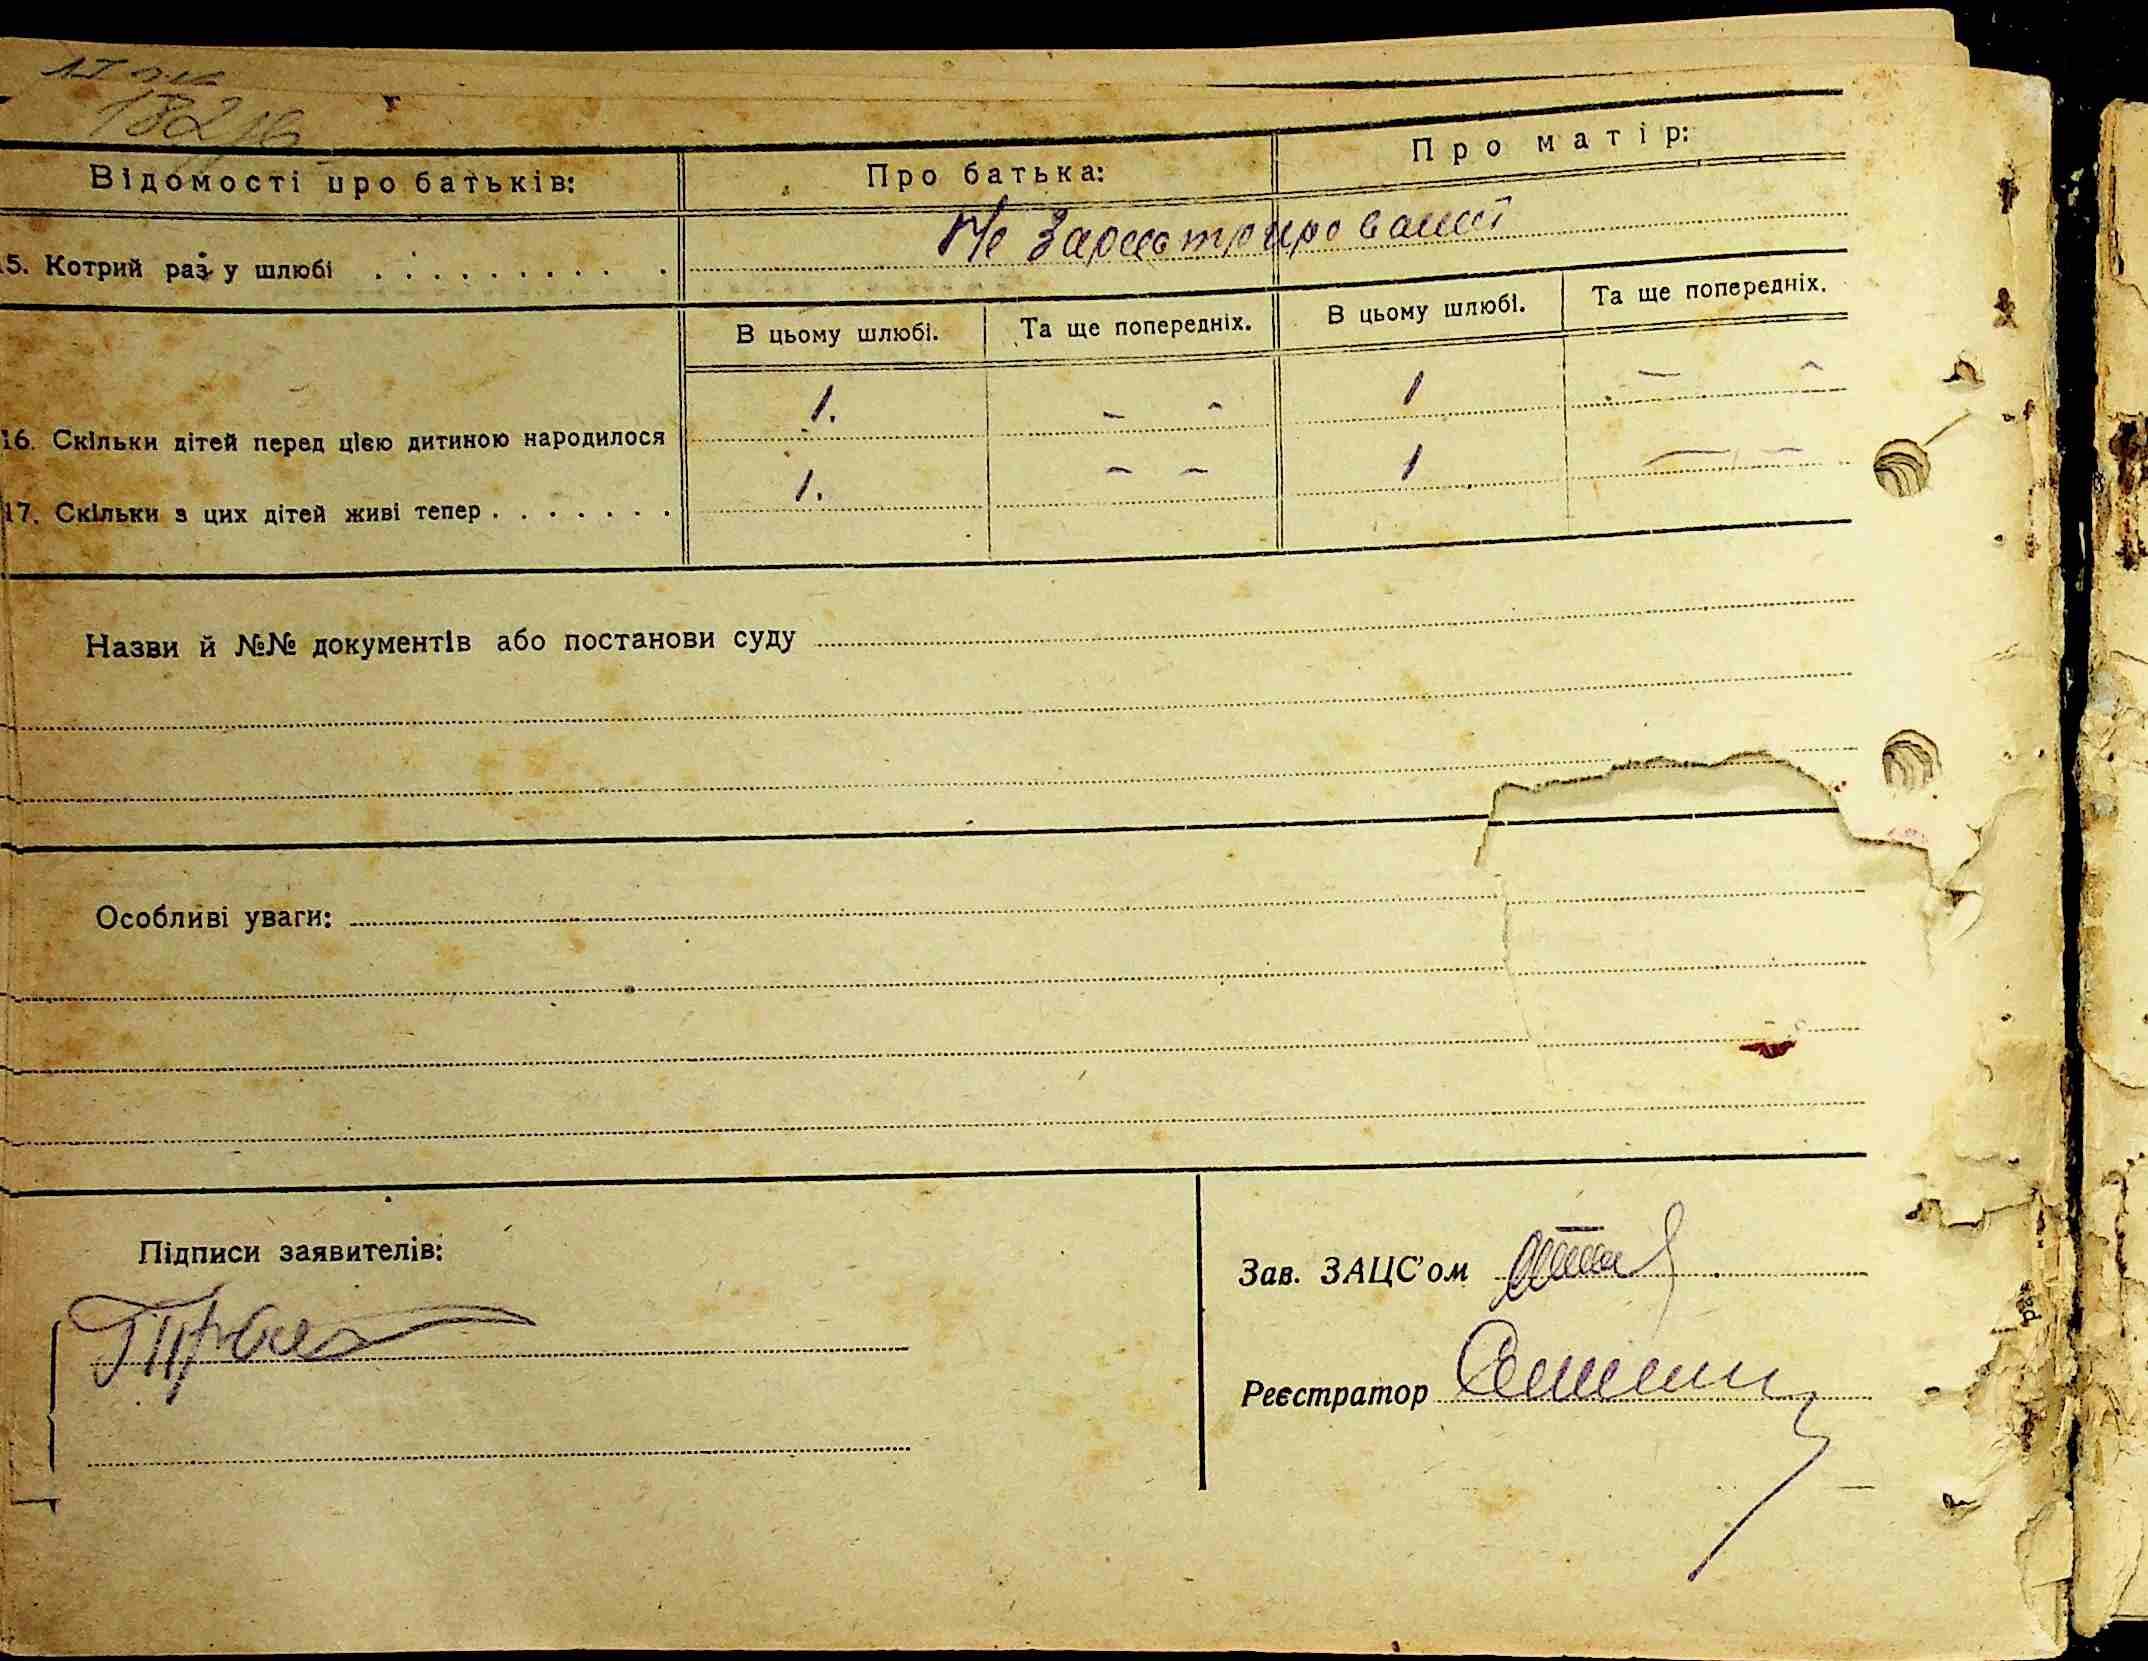 182
Відомості про батьків: Про батька: Про матір:
Не Зареєстрировані
15. Котрий раз у шлюбі . . . . . . . . . .
В цьому шлюбі. Та ще попередніх. В цьому шлюбі. Та ще попередніх.
16. Скільки дітей перед цією дитиною народилося 1. - - 1 - -
17. Скільки з цих дітей живі тепер . . . . . . . 1. - - 1 - -
Назви й №№ документів або постанови суду
Особливі уваги:
Підписи заявителів:
Зав. ЗАЦС'ом
Реєстратор